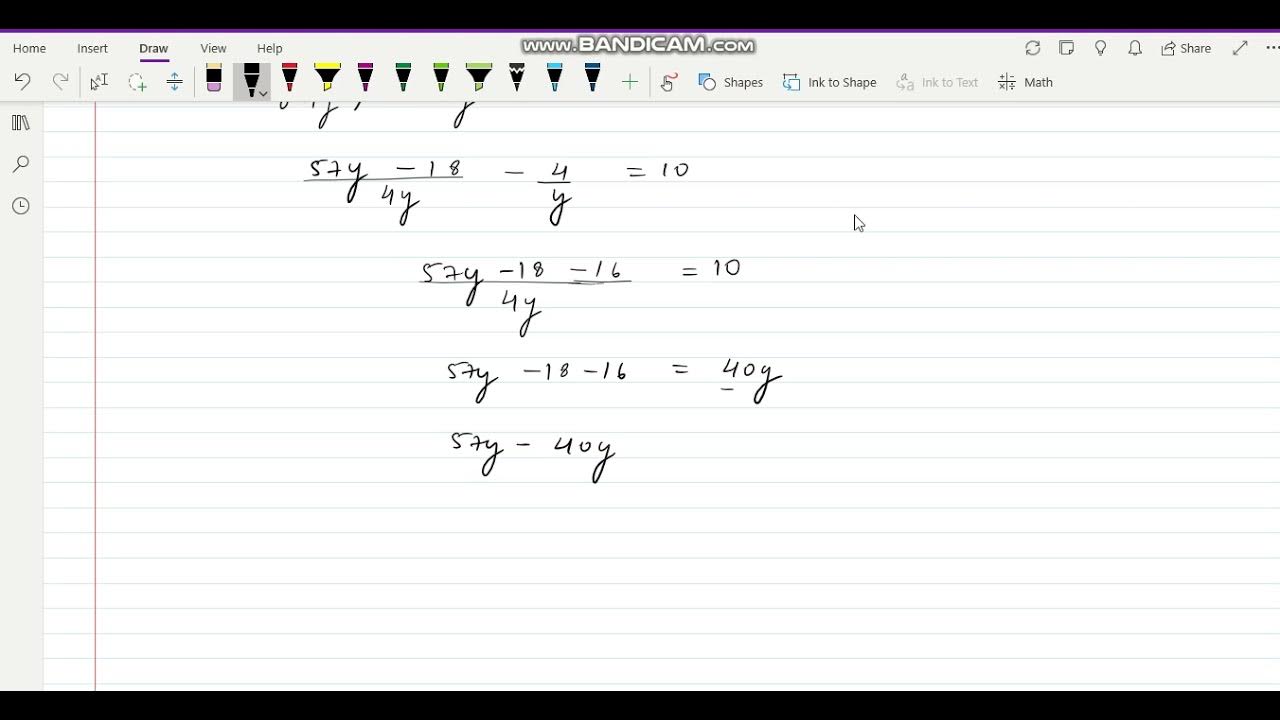 www.BANDICAM.com
Home Insert Draw View Help Share
Shapes Ink to Shape Ink to Text Math
57y - 18 / 4y - 4 / y = 10
57y - 18 - 16 / 4y = 10
57y - 18 - 16 = 40y
57y - 40y